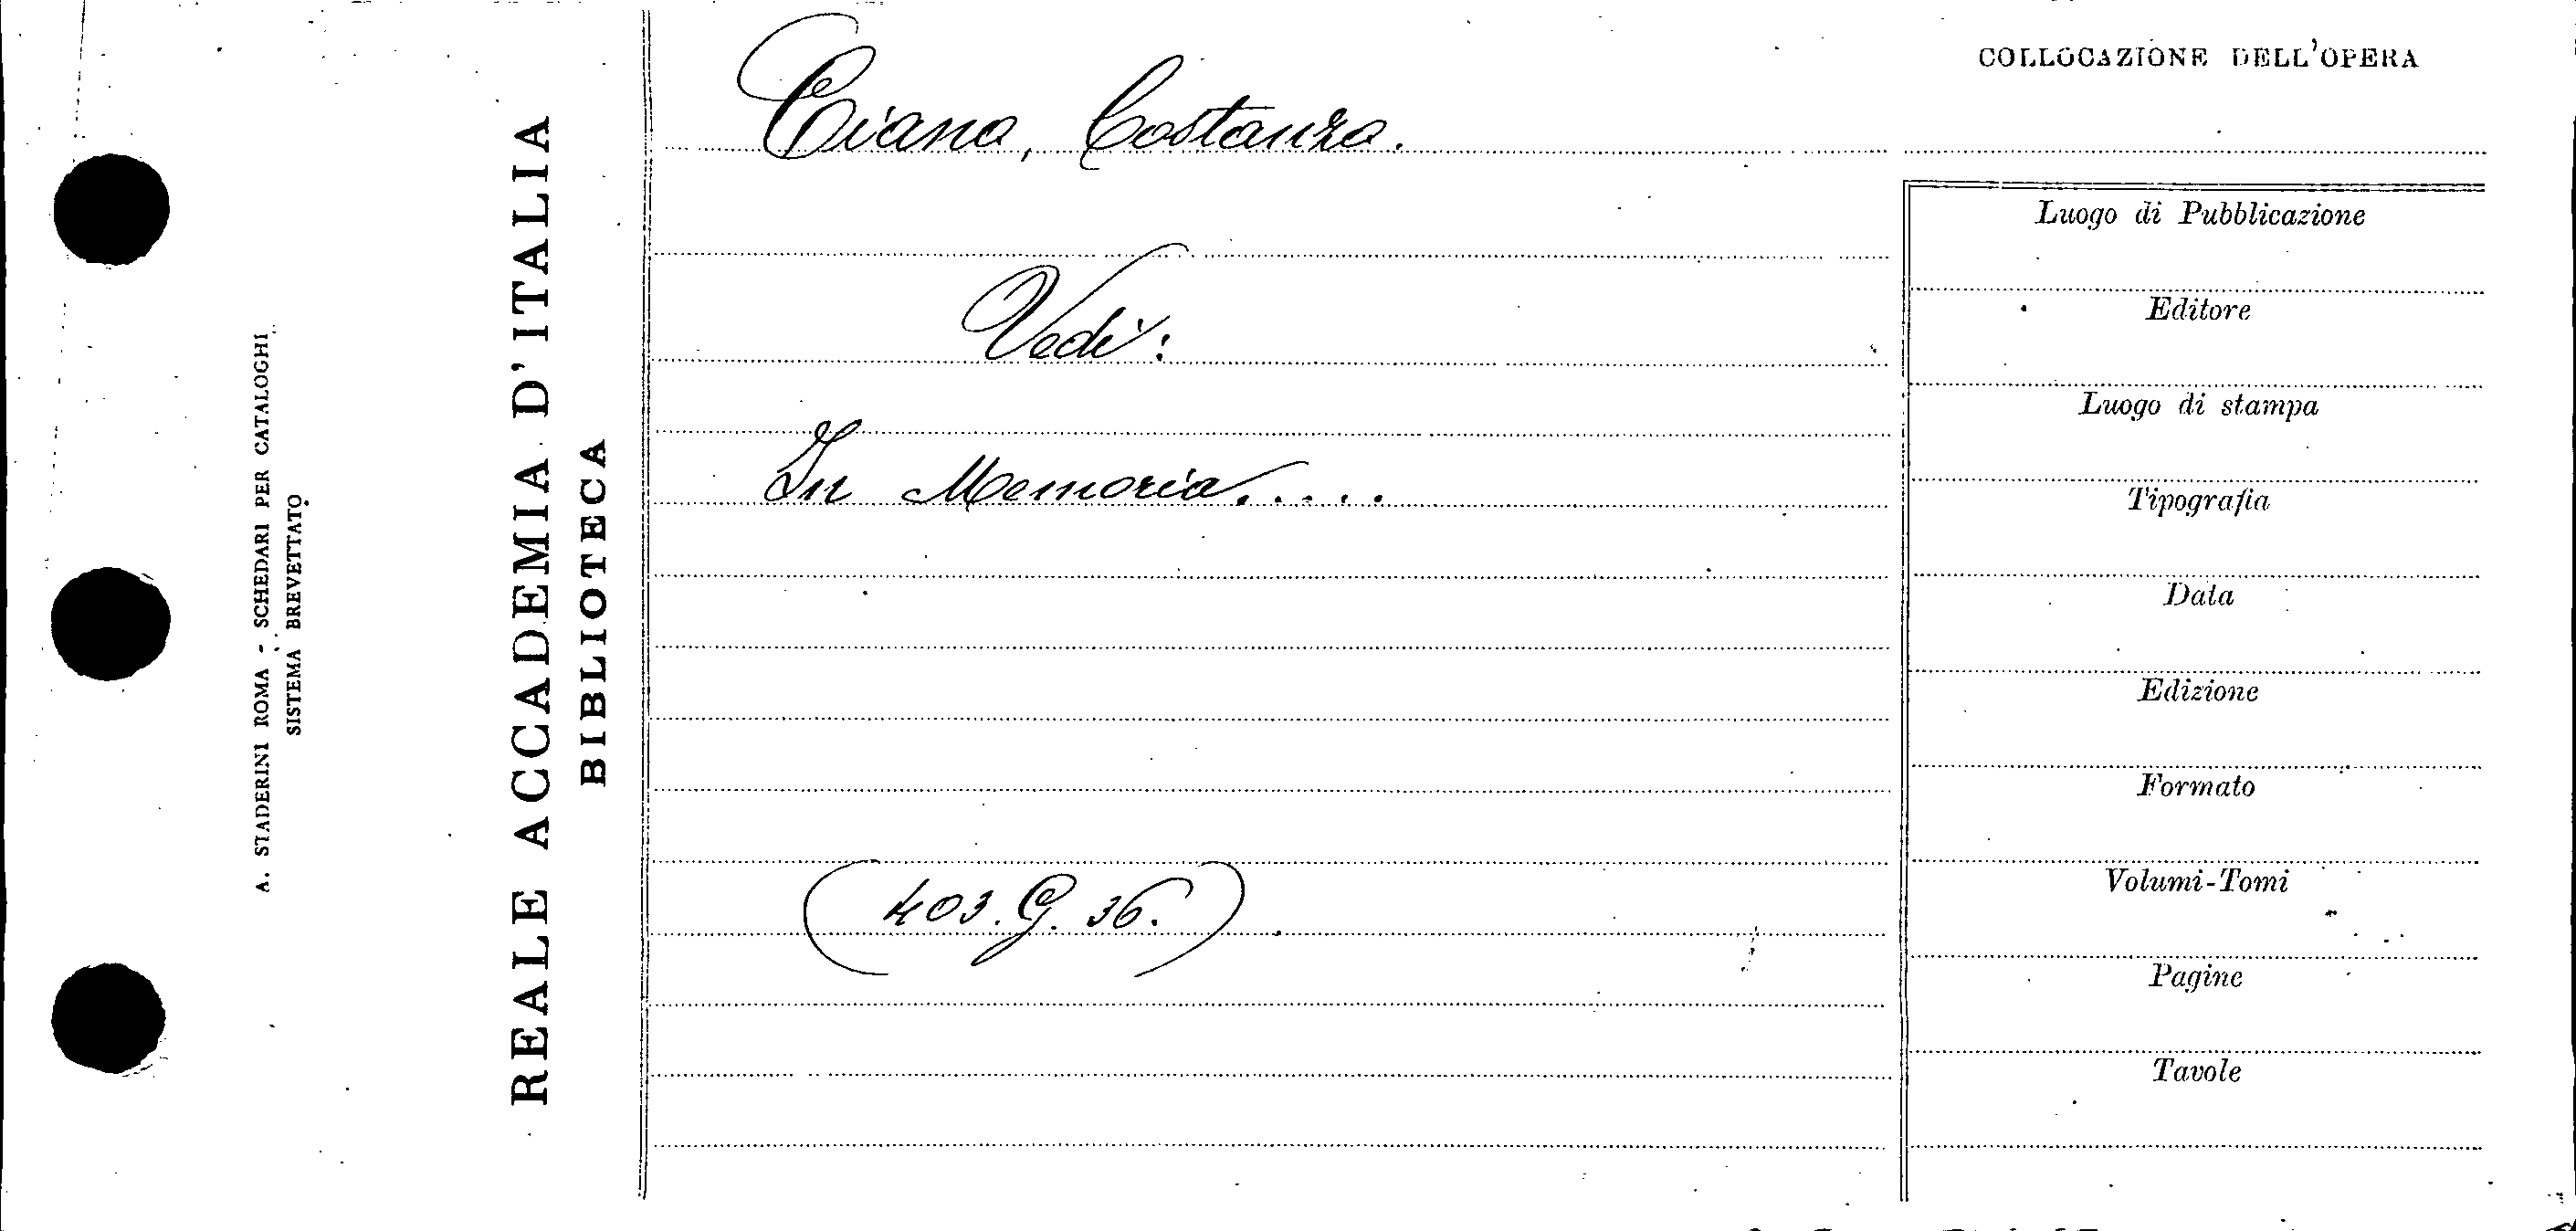 A. STADERINI ROMA - SCHEDARI PER CATALOGHI
SISTEMA BREVETTATO
REALE ACCADEMIA D'ITALIA
BIBLIOTECA
Ciano, Costanzo.
Vedi:
In Memoria.....
(403. G. 36.)
COLLOCAZIONE DELL'OPERA
Luogo di Pubblicazione
Editore
Luogo di stampa
Tipografia
Data
Edizione
Formato
Volumi-Tomi
Pagine
Tavole